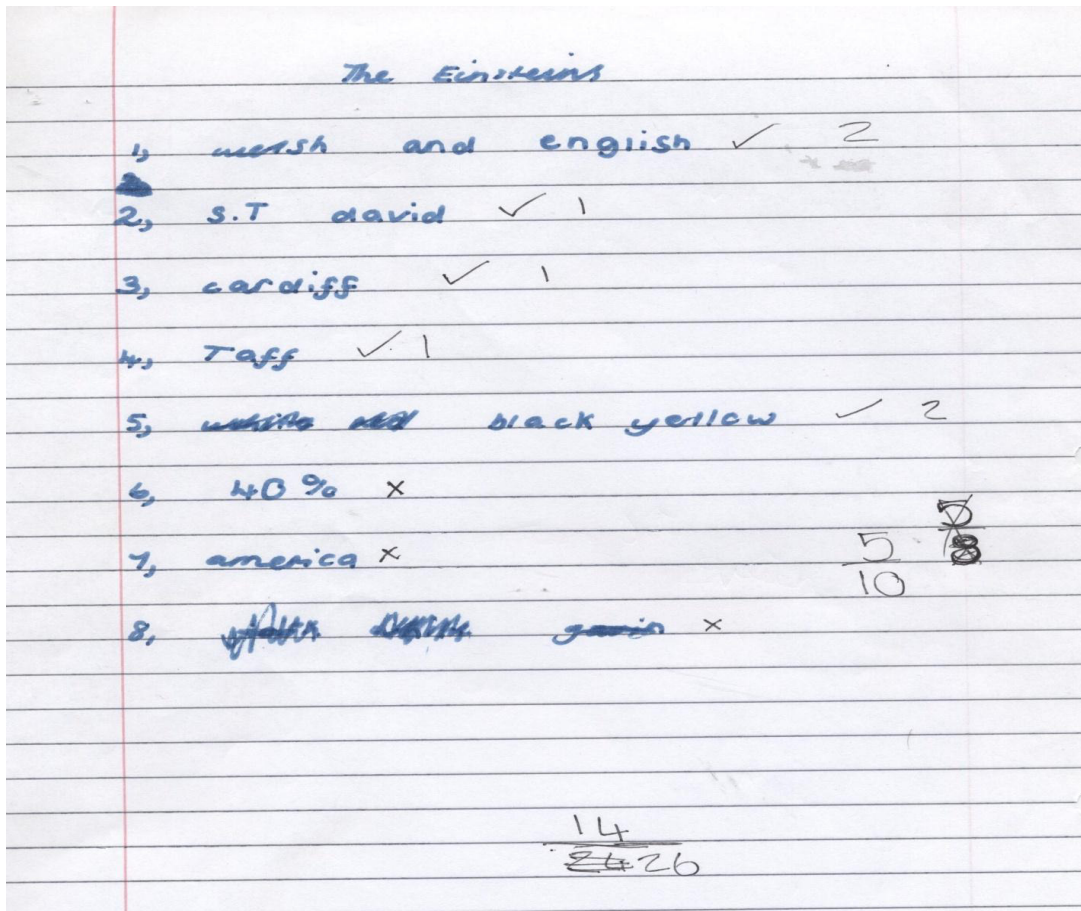 The Einsteins
1, welsh and english ✓ 2
2, S.T david ✓ 1
3, cardiff ✓ 1
4, Taff ✓ 1
5, black yellow ✓ 2
6, 40% x
7, america x
5/10
8, x
14/26